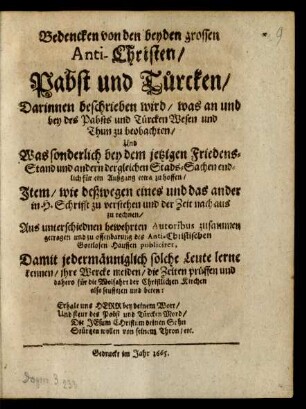 Bedencken von den beyden grossen
Anti-Christen/
Pabst und Türcken/
Darinnen beschrieben wird/ was an und
bey des Pabsts und Türcken Wesen und
Thun zu beobachten/
Und
Was sonderlich bey dem jetzigen Friedens-
Stand und andern dergleichen Stads-Sachen end-
lich für ein Außgang etwa zu hoffen/
Item/ wie deßwegen eines und das ander
in H. Schrifft zu verstehen und der Zeit nach aus
zu rechnen/
Aus unterschiednen bewehrten Autoribus zusammen
getragen und zu offenbarung des Anti-Christischen
Gottlosen Hauffen publiciret,
Damit jedermänniglich solche Leute lerne
kennen/ ihre Wercke meiden/ die Zeiten prüffen und
dahero für die Wolfahrt der Christlichen Kirchen
also seufftzen und beten:
Erhalt uns HERR bey deinem Wort/
Und steur des Pabst und Türcken Mord/
Die JEsum Christum deinen Sohn
Stürtzen wollen von seinem Thron/ etc.
Gedruckt im Jahr 1665.